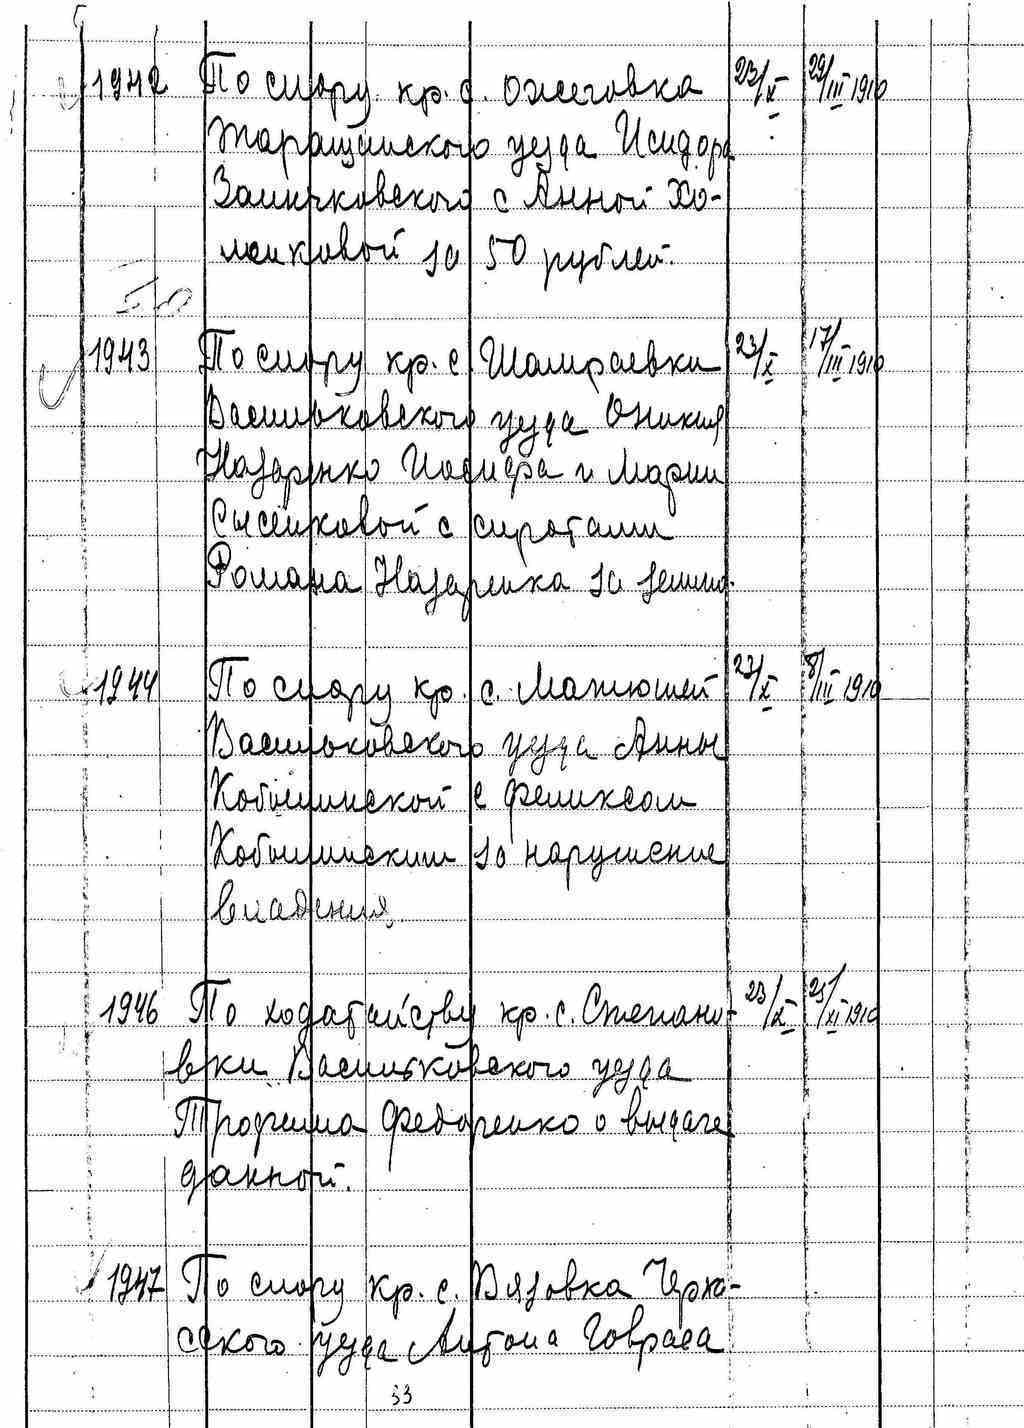 1942 По спору кр. с. Ожеговка 23/X 29/III 1910
Таращанского уезда Исидора
Заничковского с Анной Хо-
менковой за 50 рублей.
1943 По спору кр. с. Шамраевки 23/X 17/III 1910
Васильковского уезда Оникия
Назаренко Иосифа и Марии
Сысенковой с сиротами
Романа Назаренка за землю.
1944 По спору кр. с. Матюшей 23/X 8/III 1910
Васильковского уезда Анны
Кобылинской с Феликсом
Кобылинским за нарушение
владения.
1946 По ходатайству кр. с. Степано- 23/X 25/XI 1910
вки Васильковского уезда
Трофима Федоренко о выдаче
данной.
1947 По спору кр. с. Вязовка Черка-
сского уезда Антона Говраса
33